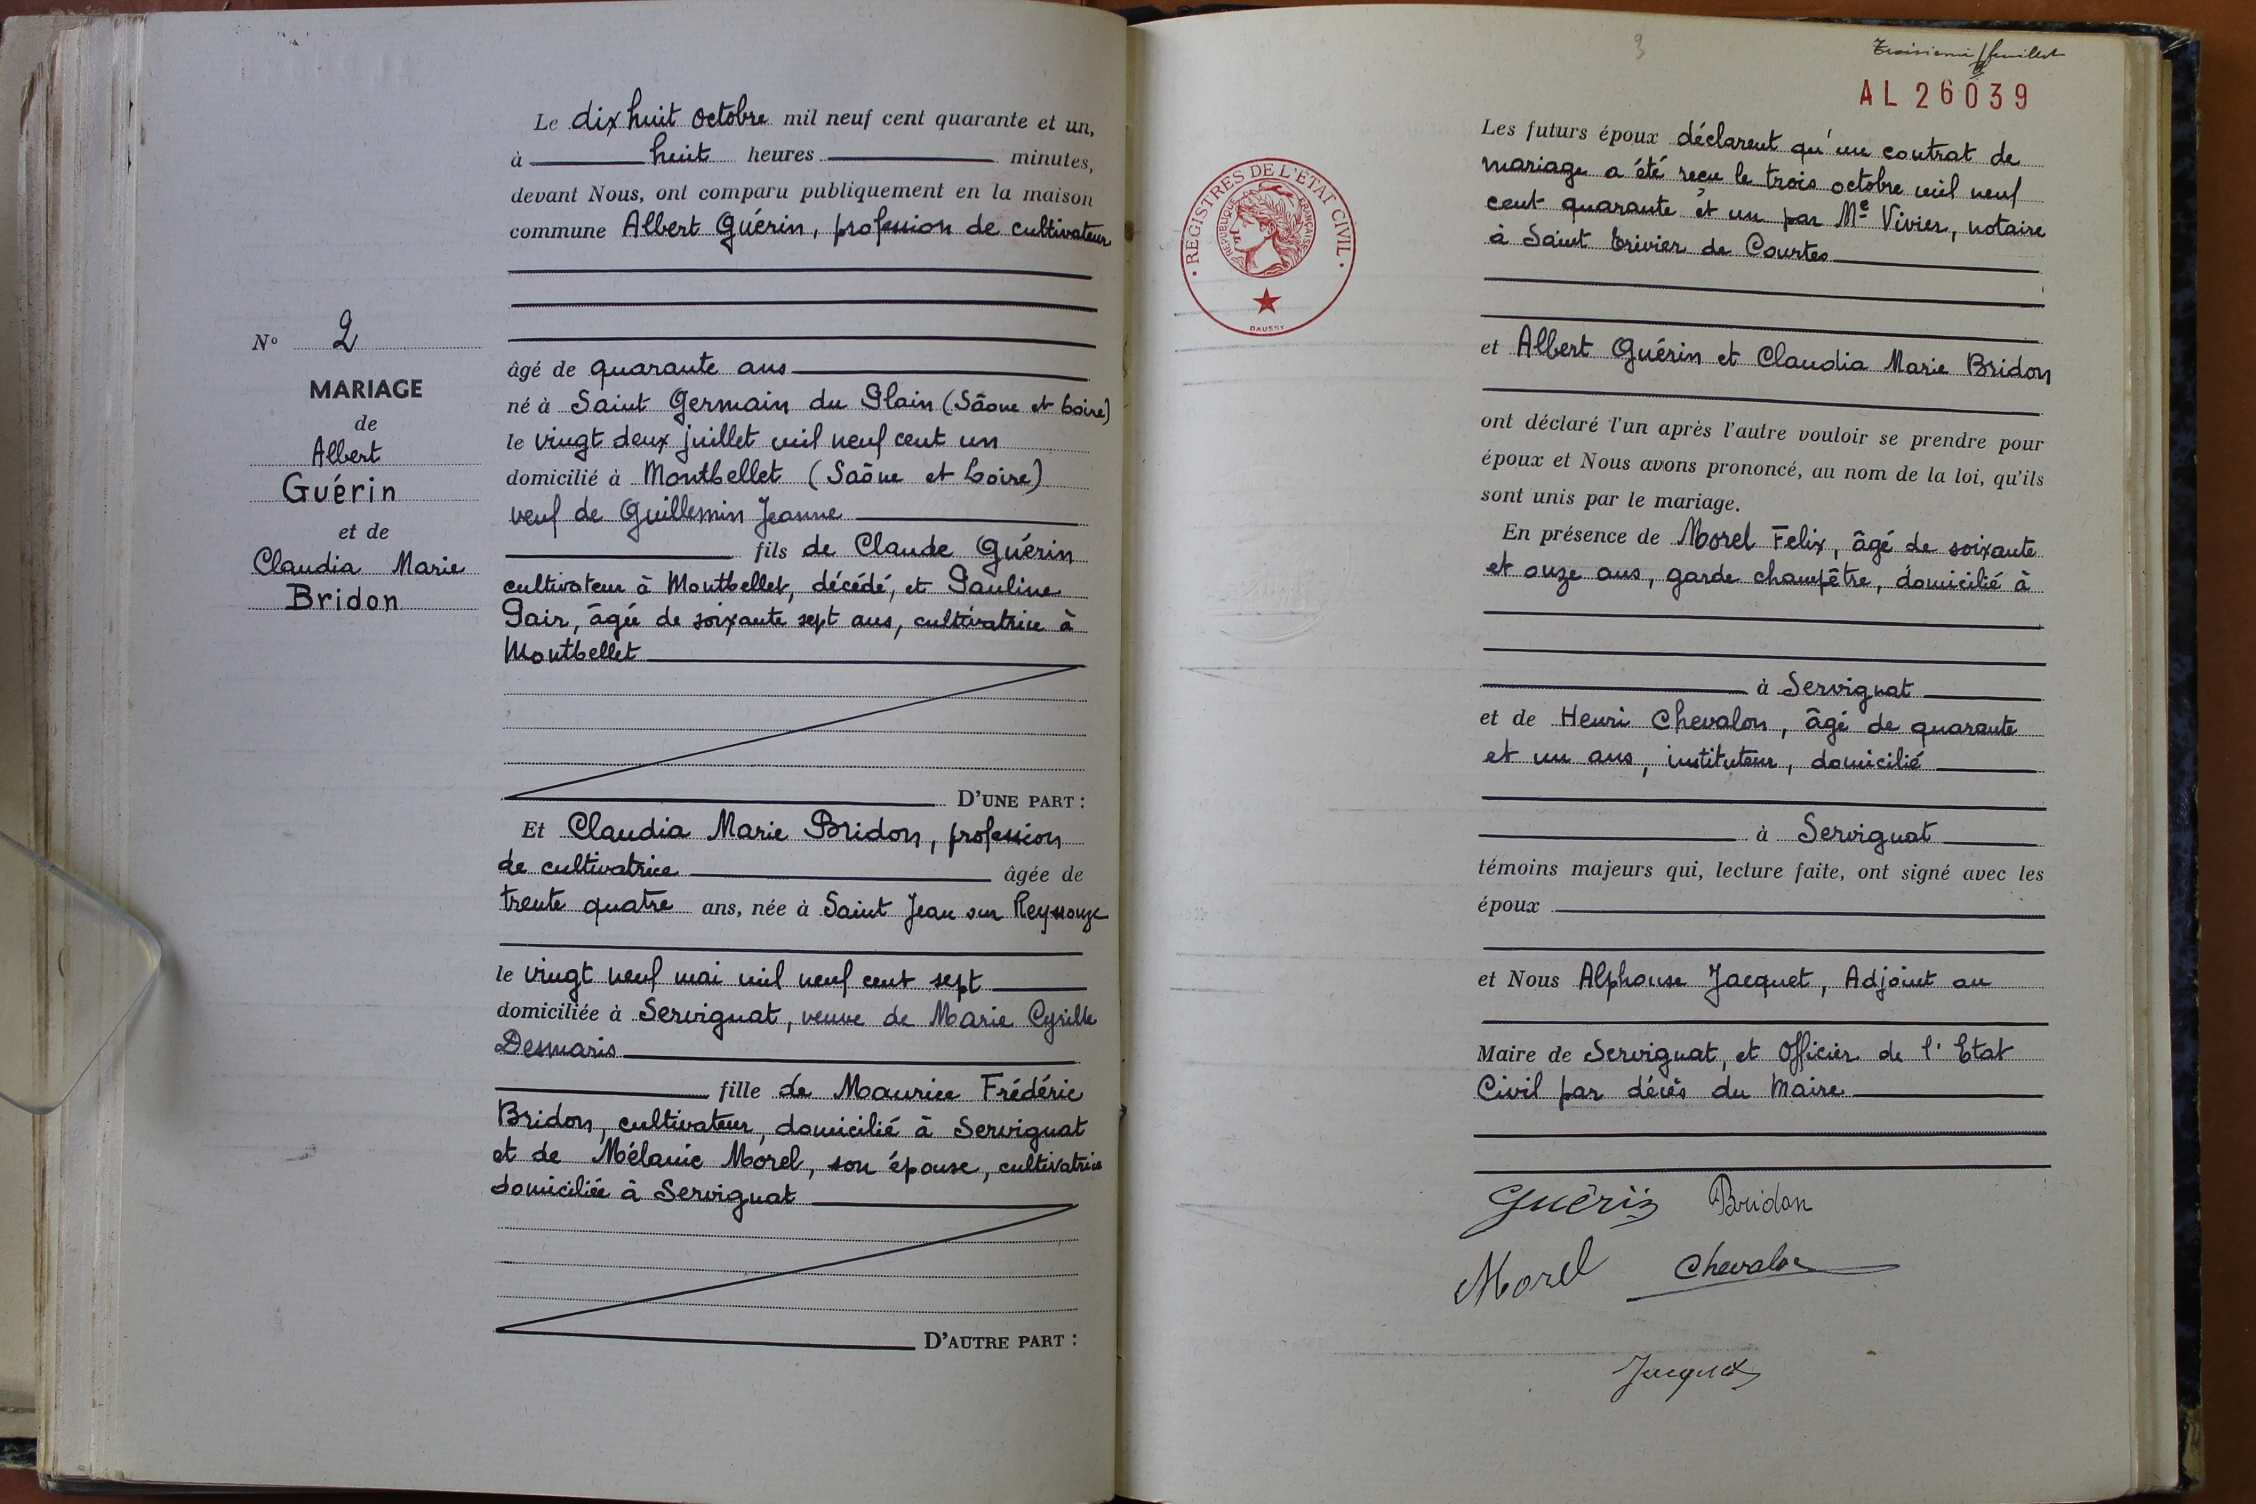 Le dix huit octobre mil neuf cent quarante et un,
à huit heures minutes,
devant Nous, ont comparu publiquement en la maison
commune Albert Guérin, profession de cultivateur
âgé de quarante ans
né à Saint Germain du Plain (Saône et Loire)
le vingt deux juillet mil neuf cent un
domicilié à Montbellet (Saône et Loire)
veuf de Guillemin Jeanne
fils de Claude Guérin
cultivateur à Montbellet, décédé, et Pauline
Pair, âgée de soixante sept ans, cultivatrice à
Montbellet
D'UNE PART :
Et Claudia Marie Bridon, profession
de cultivatrice âgée de
trente quatre ans, née à Saint Jean sur Reyssouze
le vingt neuf mai mil neuf cent sept
domiciliée à Servignat, veuve de Marie Cyrille
Desmaris
fille de Maurice Frédéric
Bridon, cultivateur, domicilié à Servignat
et de Mélanie Morel, son épouse, cultivatrice
domiciliée à Servignat
D'AUTRE PART :
Nº 2
MARIAGE
de
Albert
Guérin
et de
Claudia Marie
Bridon
3
Troisième feuillet
AL26039
REGISTRES DE L'ÉTAT CIVIL
RÉPUBLIQUE FRANÇAISE
DAUSSY
Les futurs époux déclarent qu'un contrat de
mariage a été reçu le trois octobre mil neuf
cent quarante et un par Me Vivier, notaire
à Saint Trivier de Courtes
et Albert Guérin et Claudia Marie Bridon
ont déclaré l'un après l'autre vouloir se prendre pour
époux et Nous avons prononcé, au nom de la loi, qu'ils
sont unis par le mariage.
En présence de Morel Felix, âgé de soixante
et onze ans, garde champêtre, domicilié à
à Servignat
et de Henri Chevalon, âgé de quarante
et un ans, instituteur, domicilié
à Servignat
témoins majeurs qui, lecture faite, ont signé avec les
époux
et Nous Alphonse Jacquet, Adjoint au
Maire de Servignat, et Officier de l'Etat
Civil par décès du Maire
Guérin Bridon
Morel Chevalon
Jacquet